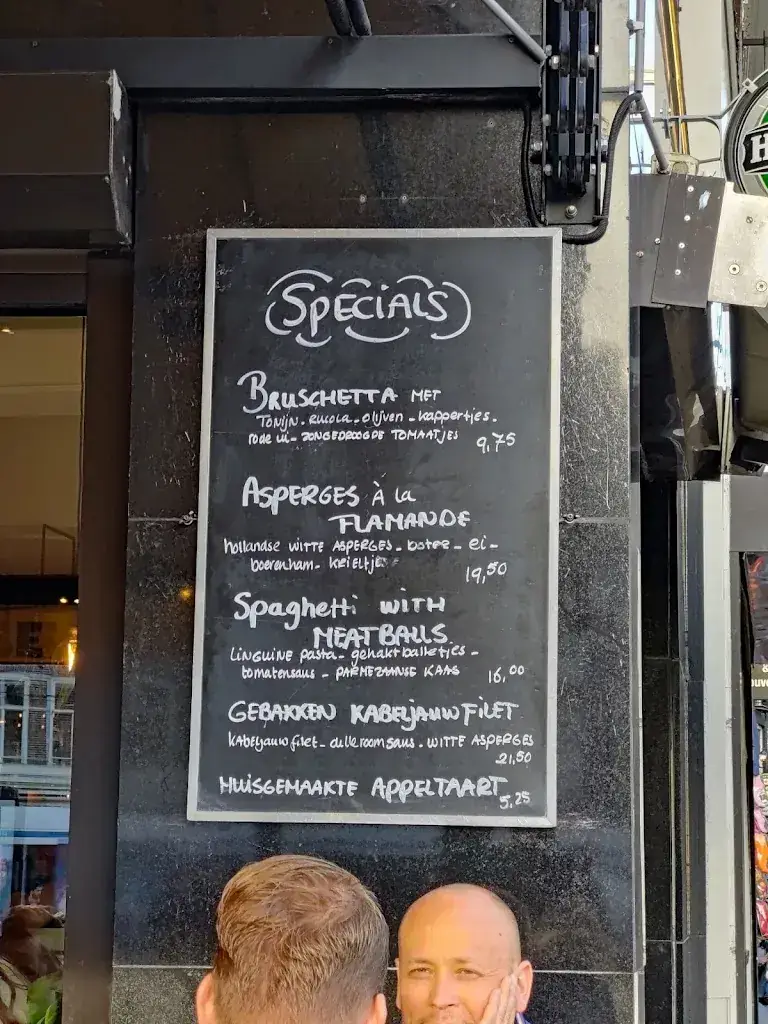 SPECIALS
BRUSCHETTA MET
TONIJN - RUCOLA - OLIJVEN - KAPPERTJES -
RODE UI - ZONGEDROOGDE TOMAATJES 9,75
ASPERGES À LA
FLAMANDE
HOLLANDSE WITTE ASPERGES - BOTER - EI -
BOERENHAM - KRIELTJES 19,50
Spaghetti WITH
MEATBALLS
LINGUINE PASTA - GEHAKTBALLETJES -
TOMATENSAUS - PARMEZAANSE KAAS 16,00
GEBAKKEN KABELJAUWFILET
KABELJAUWFILET - DILLEROOMSAUS - WITTE ASPERGES
21,50
HUISGEMAAKTE APPELTAART
5,25
H